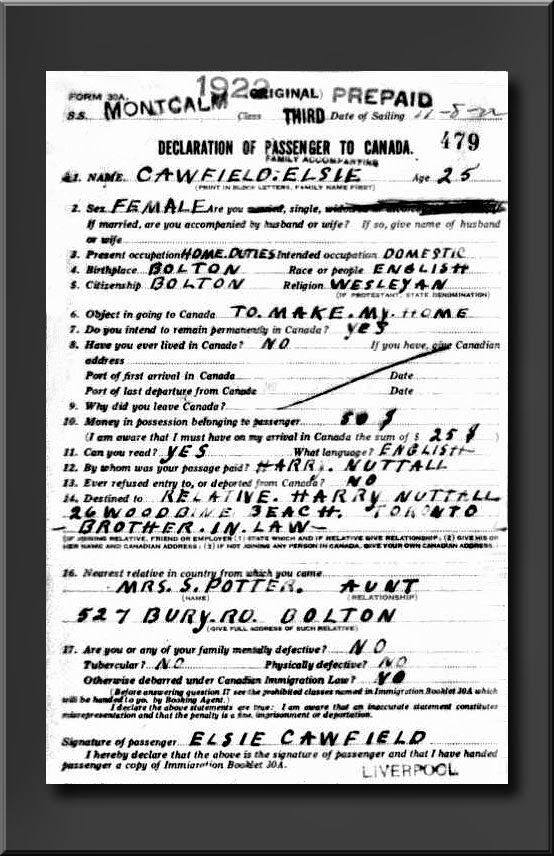 1922
FORM 30A. (ORIGINAL) PREPAID
S.S. MONTCALM Class THIRD Date of Sailing 11-8-22
DECLARATION OF PASSENGER TO CANADA. 479
FAMILY ACCOMPANYING
1. NAME CAWFIELD. ELSIE Age 25
(PRINT IN BLOCK LETTERS, FAMILY NAME FIRST)
2. Sex FEMALE Are you married, single,
If married, are you accompanied by husband or wife? If so, give name of husband
or wife
3. Present occupation HOME. DUTIES Intended occupation DOMESTIC
4. Birthplace BOLTON Race or people ENGLISH
5. Citizenship BOLTON Religion WESLEYAN
(IF PROTESTANT, STATE DENOMINATION)
6. Object in going to Canada TO. MAKE. MY. HOME
7. Do you intend to remain permanently in Canada? YES
8. Have you ever lived in Canada? NO If you have, give Canadian
address
Port of first arrival in Canada Date
Port of last departure from Canada Date
9. Why did you leave Canada?
10. Money in possession belonging to passenger 50 $
(I am aware that I must have on my arrival in Canada the sum of $ 25 $ )
11. Can you read? YES What language? ENGLISH
12. By whom was your passage paid? HARRY. NUTTALL
13. Ever refused entry to, or deported from Canada? NO
14. Destined to RELATIVE. HARRY NUTTALL
26 WOODBINE BEACH. TORONTO
BROTHER. IN. LAW
(IF JOINING RELATIVE, FRIEND OR EMPLOYER (1) STATE WHICH AND IF RELATIVE GIVE RELATIONSHIP; (2) GIVE HIS OR
HER NAME AND CANADIAN ADDRESS; (3) IF NOT JOINING ANY PERSON IN CANADA, GIVE YOUR OWN CANADIAN ADDRESS
16. Nearest relative in country from which you came
MRS. S. POTTER. AUNT
(NAME) (RELATIONSHIP)
527 BURY. RD. BOLTON
(GIVE FULL ADDRESS OF SUCH RELATIVE)
17. Are you or any of your family mentally defective? NO
Tubercular? NO Physically defective? NO
Otherwise debarred under Canadian Immigration Law? NO
(Before answering question 17 see the prohibited classes named in Immigration Booklet 30A which
will be handed to you by Booking Agent.)
I declare the above statements are true: I am aware that an inaccurate statement constitutes
misrepresentation and that the penalty is a fine, imprisonment or deportation.
Signature of passenger ELSIE CAWFIELD
I hereby declare that the above is the signature of passenger and that I have handed
passenger a copy of Immigration Booklet 30A.
LIVERPOOL